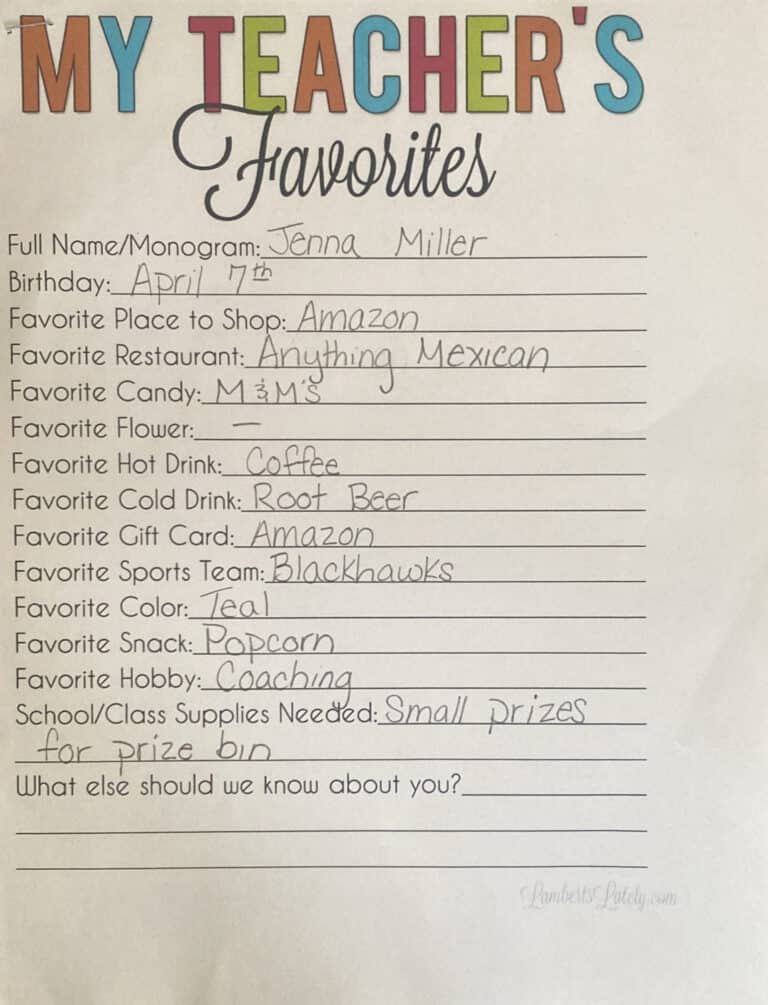 MY TEACHER'S
Favorites
Full Name/Monogram: Jenna Miller
Birthday: April 7th
Favorite Place to Shop: Amazon
Favorite Restaurant: Anything Mexican
Favorite Candy: M & M's
Favorite Flower: —
Favorite Hot Drink: Coffee
Favorite Cold Drink: Root Beer
Favorite Gift Card: Amazon
Favorite Sports Team: Blackhawks
Favorite Color: Teal
Favorite Snack: Popcorn
Favorite Hobby: Coaching
School/Class Supplies Needed: Small prizes
for prize bin
What else should we know about you?
LambertsLately.com